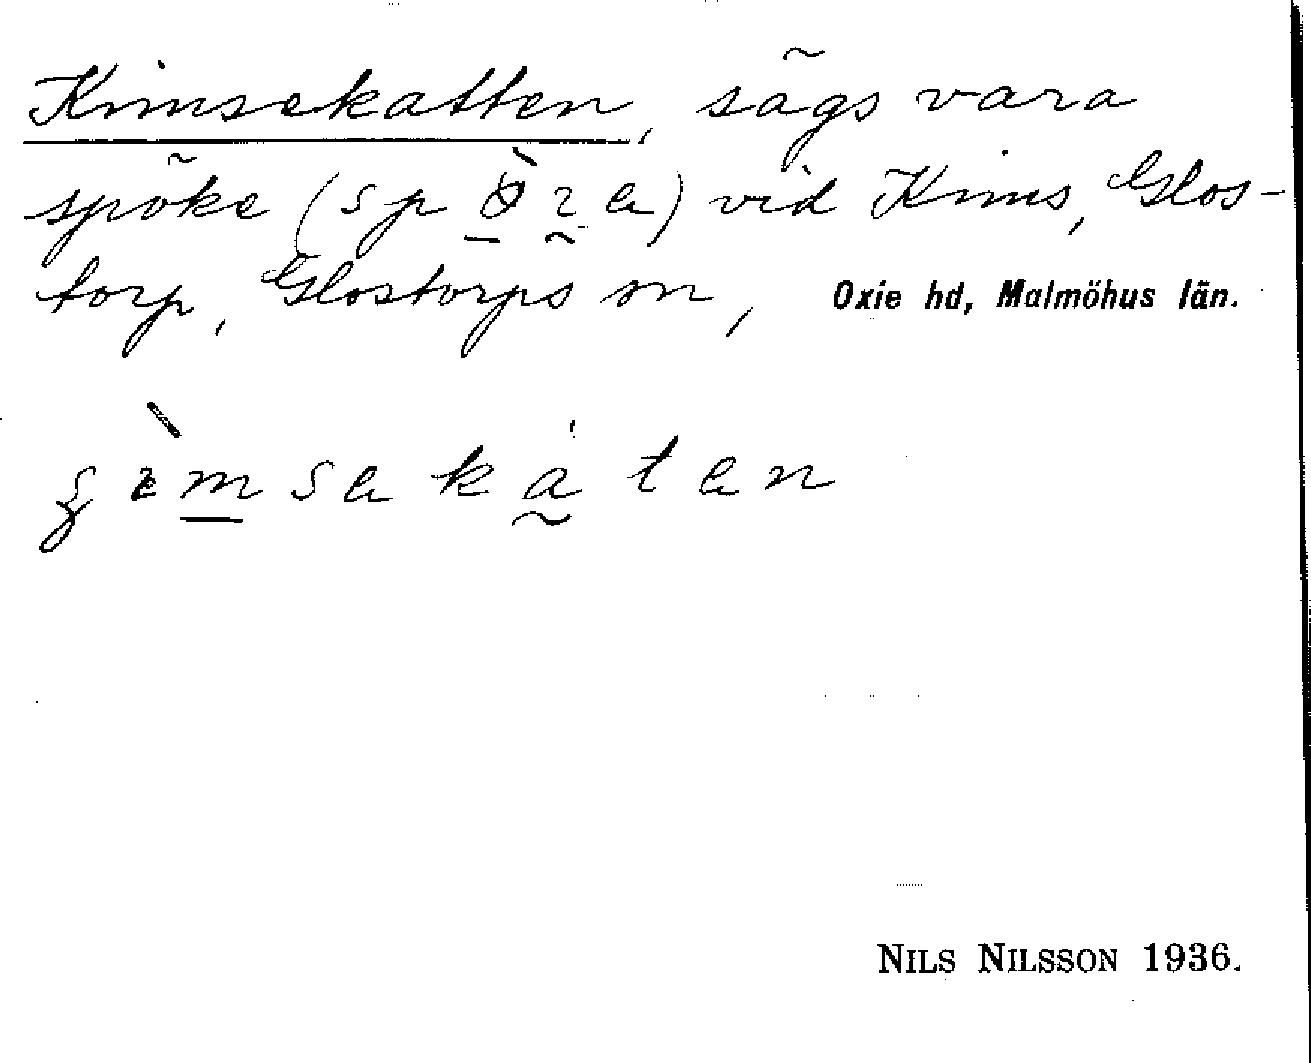 Kimsekatten, sägs vara
spöke (spø̀ɿe) vid Kims, Glos-
torp, Glostorps sn, Oxie hd, Malmöhus län.
mseka̰ten
NILS NILSSON 1936.